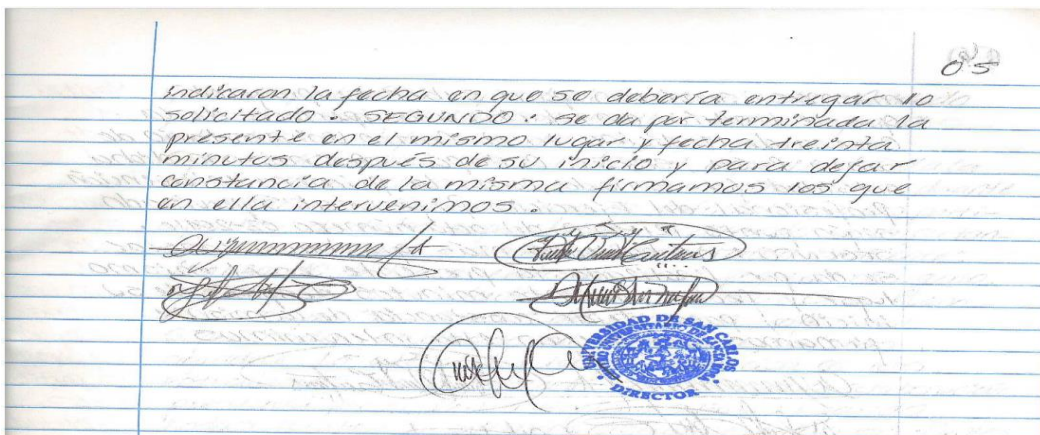 05
indicaron la fecha en que se debería entregar lo
solicitado. SEGUNDO: se da por terminada la
presente en el mismo lugar y fecha treinta
minutos después de su inicio y para dejar
constancia de la misma firmamos los que
en ella intervenimos.
UNIVERSIDAD DE SAN CARLOS
DIRECTOR